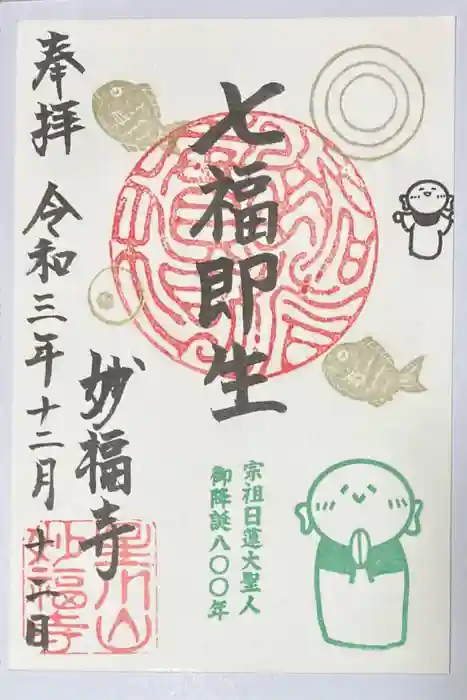 七福即生
宗祖日蓮大聖人
御降誕八〇〇年
妙福寺
奉拝 令和三年十二月十五日
妙福寺